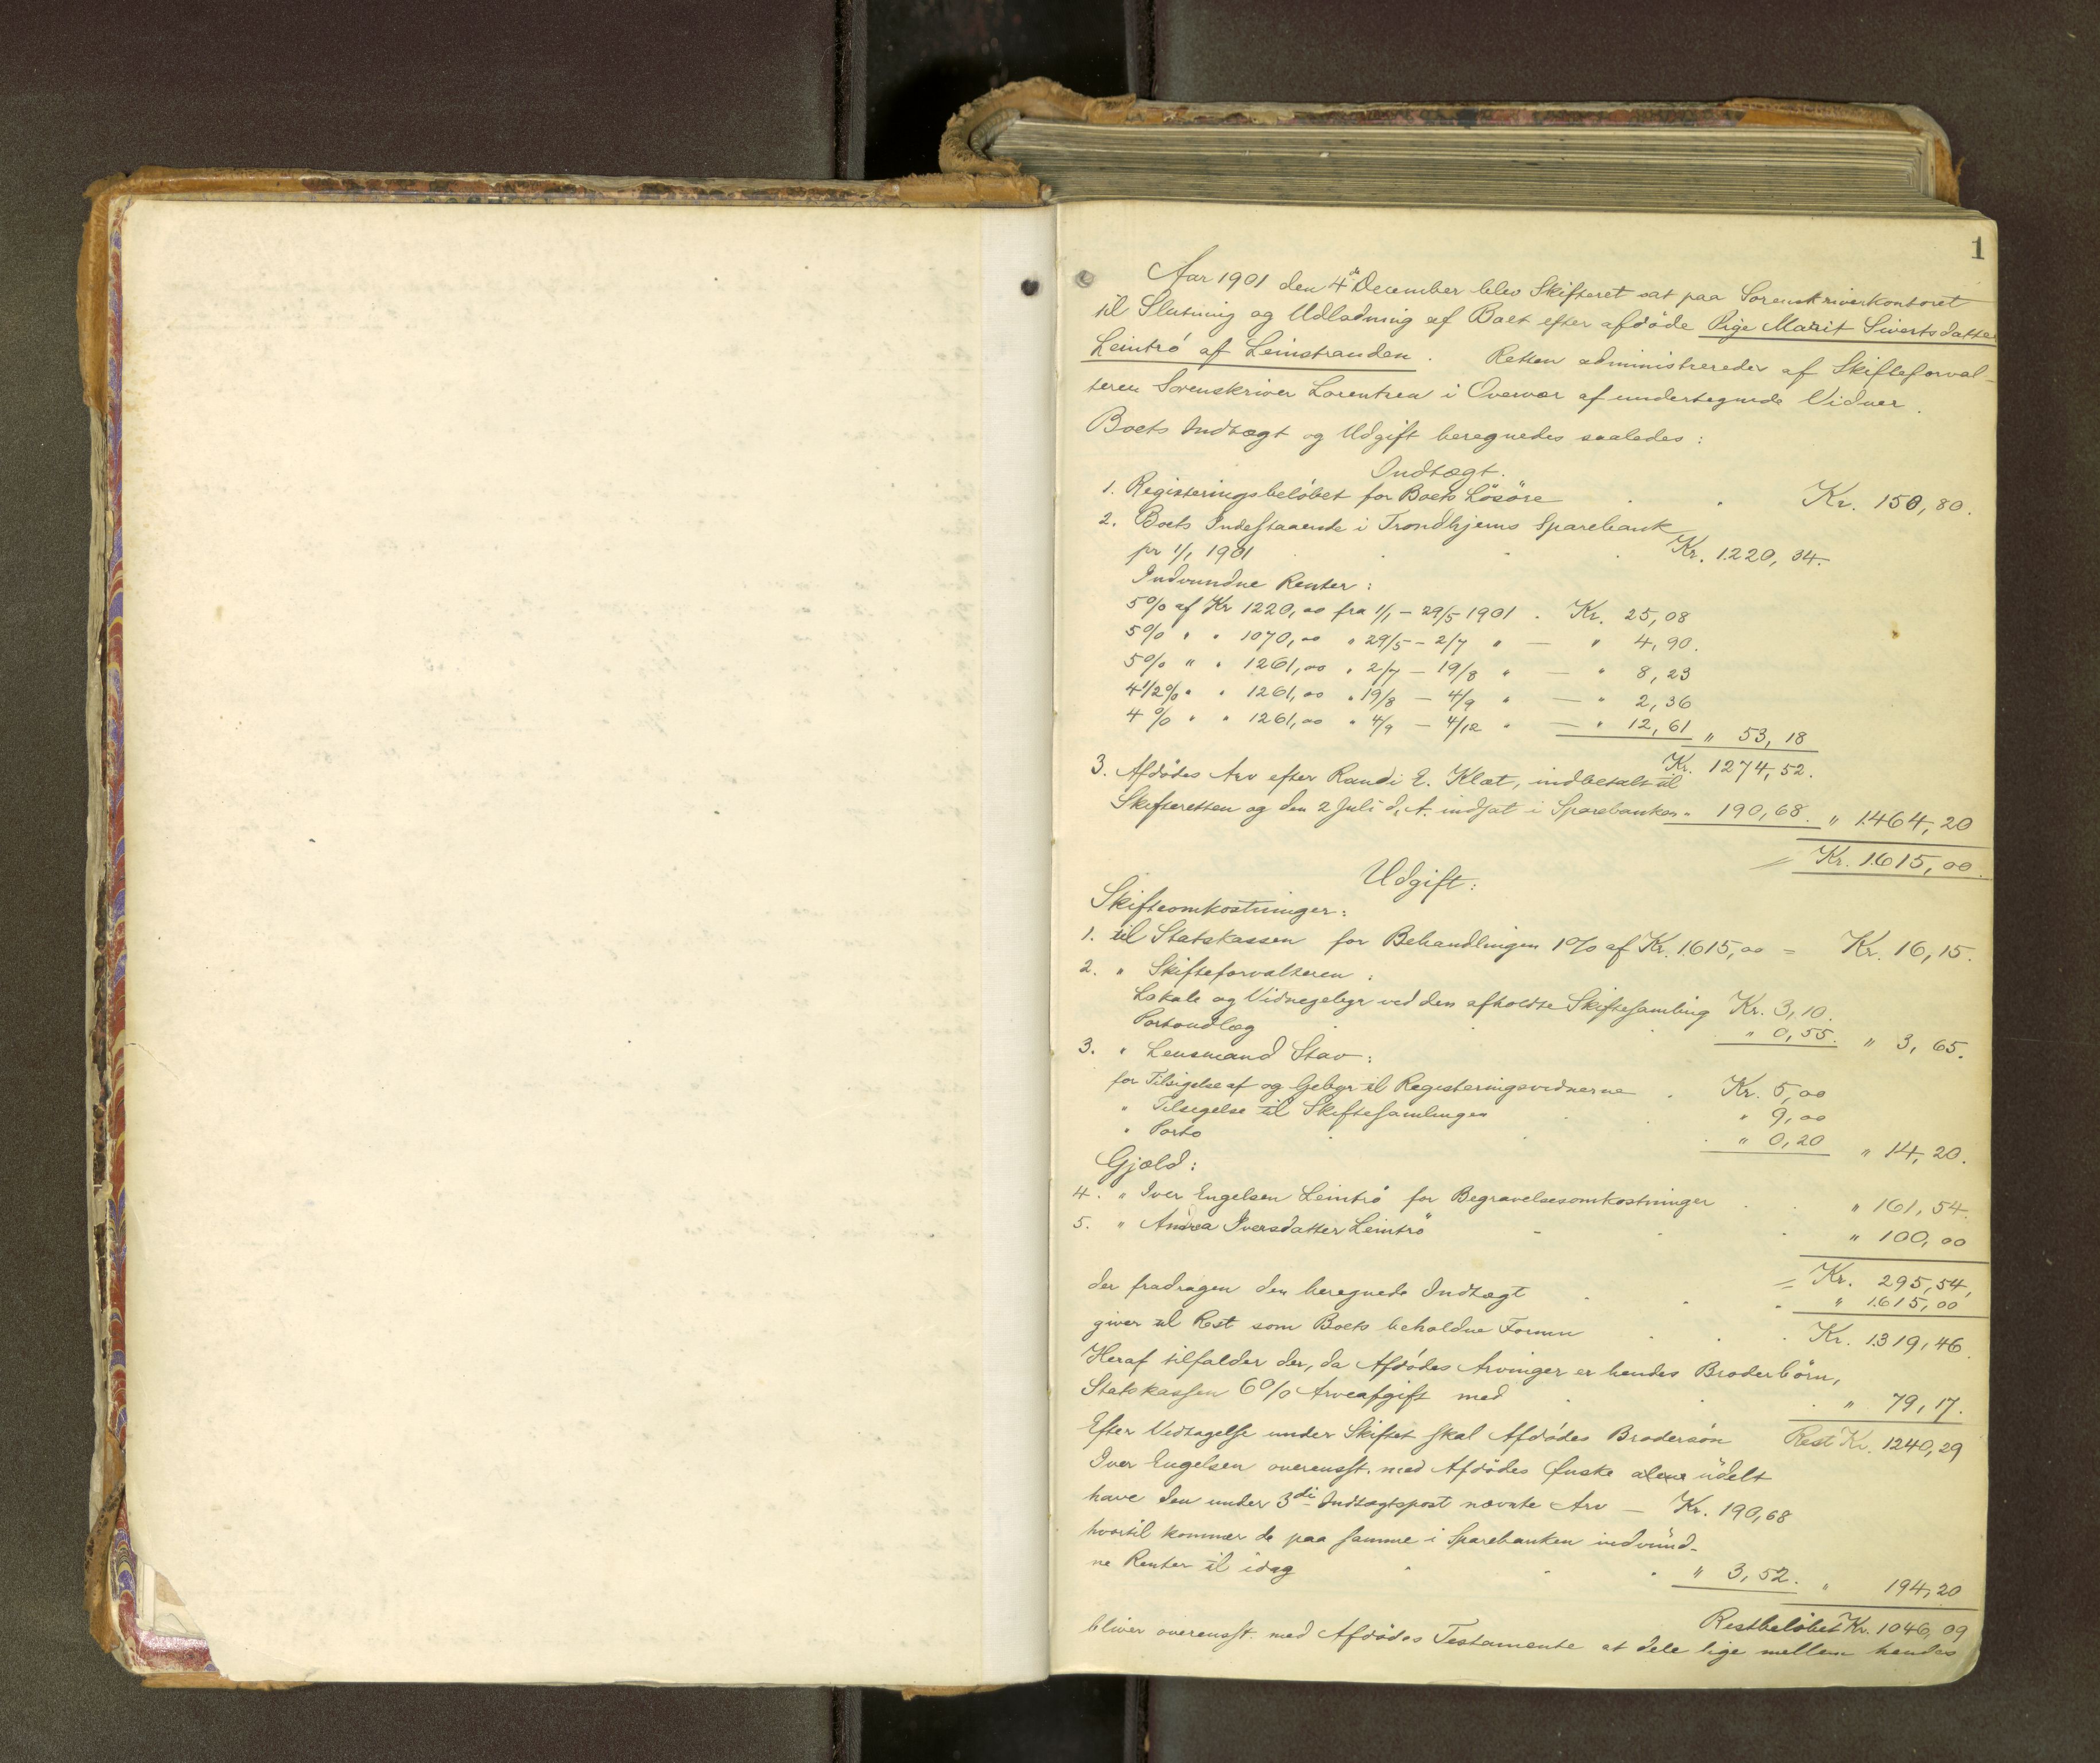 1
Aar 1901 den 4de December blev Skifteret sat paa Sorenskriverkontoret
til Slutning og Udlodning af Boet efter afdøde Pige Marit Sivertsdatter
Leintrö af Leinstranden. Retten administreredes af Skifteforval-
teren Sorenskriver Lorentzen i Overvær af undertegnede Vidner.
Boets Indtægt og Udgift beregnedes saaledes:
Indtægt.
1. Registeringsbeløbet for Boets Løsöre . . Kr. 150,80.
2. Boets Indestaaende i Trondhjems Sparebank
pr 1/1 1901 . . . Kr. 1220,34.
Indvundne Renter:
5% af Kr 1220,00 fra 1/1 - 29/5 1901 . Kr. 25,08
5% " " 1070,00 " 29/5 - 2/7 " — " 4,90.
5% " " 1261,00 " 2/7 - 19/8 " — " 8,23
4 1/2% " " 1261,00 " 19/8 - 4/9 " — " 2,36
4 % " " 1261,00 " 4/9 - 4/12 " — " 12,61 " 53,18
Kr. 1274,52.
3. Afdødes Arv efter Randi E. Klæt, indbetalt til
Skifteretten og den 2 Juli d. A. indsat i Sparebanken " 190,68. " 1464,20
= Kr. 1615,00.
Udgift:
Skifteomkostninger:
1. til Statskassen for Behandlingen 1% af Kr. 1615,00 = Kr. 16,15.
2. " Skifteforvalteren:
Lokale og Vidnegebyr ved den afholdte Skiftesamling Kr. 3,10.
Portoudlæg . . . " 0,55. " 3,65.
3. " Lensmand Stav:
for Tilsigelse af og Gebyr til Registeringsvidnerne . Kr. 5,00
" Tilsigelse til Skiftesamlingen . . " 9,00
" Porto . . . " 0,20 " 14,20.
Gjæld:
4. " Iver Engelsen Leintrö for Begravelsesomkostninger . . " 161,54.
5. " Andrea Iversdatter Leintrö - . . " 100,00
= Kr. 295,54,
der fradragen den beregnede Indtægt . . . " 1615,00
giver til Rest som Boets beholdne Formue . . . Kr. 1319,46.
Heraf tilfalder der, da Afdødes Arvinger er hendes Broderbörn,
Statskassen 6% Arveafgift med . . . " 79,17.
Rest Kr. 1240,29
Efter Vedtagelse under Skiftet skal Afdødes Brodersön
Iver Engelsen overensst. med Afdødes Ønske alene udelt
have den under 3di Indtægtspost nævnte Arv — Kr. 190,68
hvortil kommer de paa samme i Sparebanken indvund-
ne Renter til idag . . . " 3,52. " 194,20
Restbeløbet Kr. 1046,09
bliver overensst. med Afdødes Testamente at dele lige mellem hendes